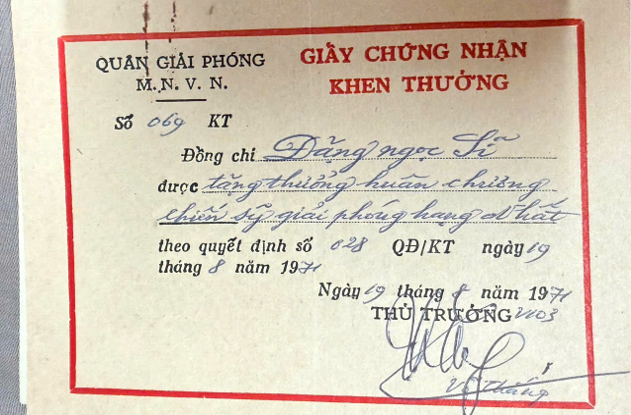 QUÂN GIẢI PHÓNG
M.N.V.N.
GIẤY CHỨNG NHẬN
KHEN THƯỞNG
Số 069 KT
Đồng chí Đặng ngọc Sĩ
được tặng thưởng huân chương
chiến sỹ giải phóng hạng Nhất
theo quyết định số 028 QĐ/KT ngày 19
tháng 8 năm 1971
Ngày 19 tháng 8 năm 1971
THỦ TRƯỞNG
Thắng